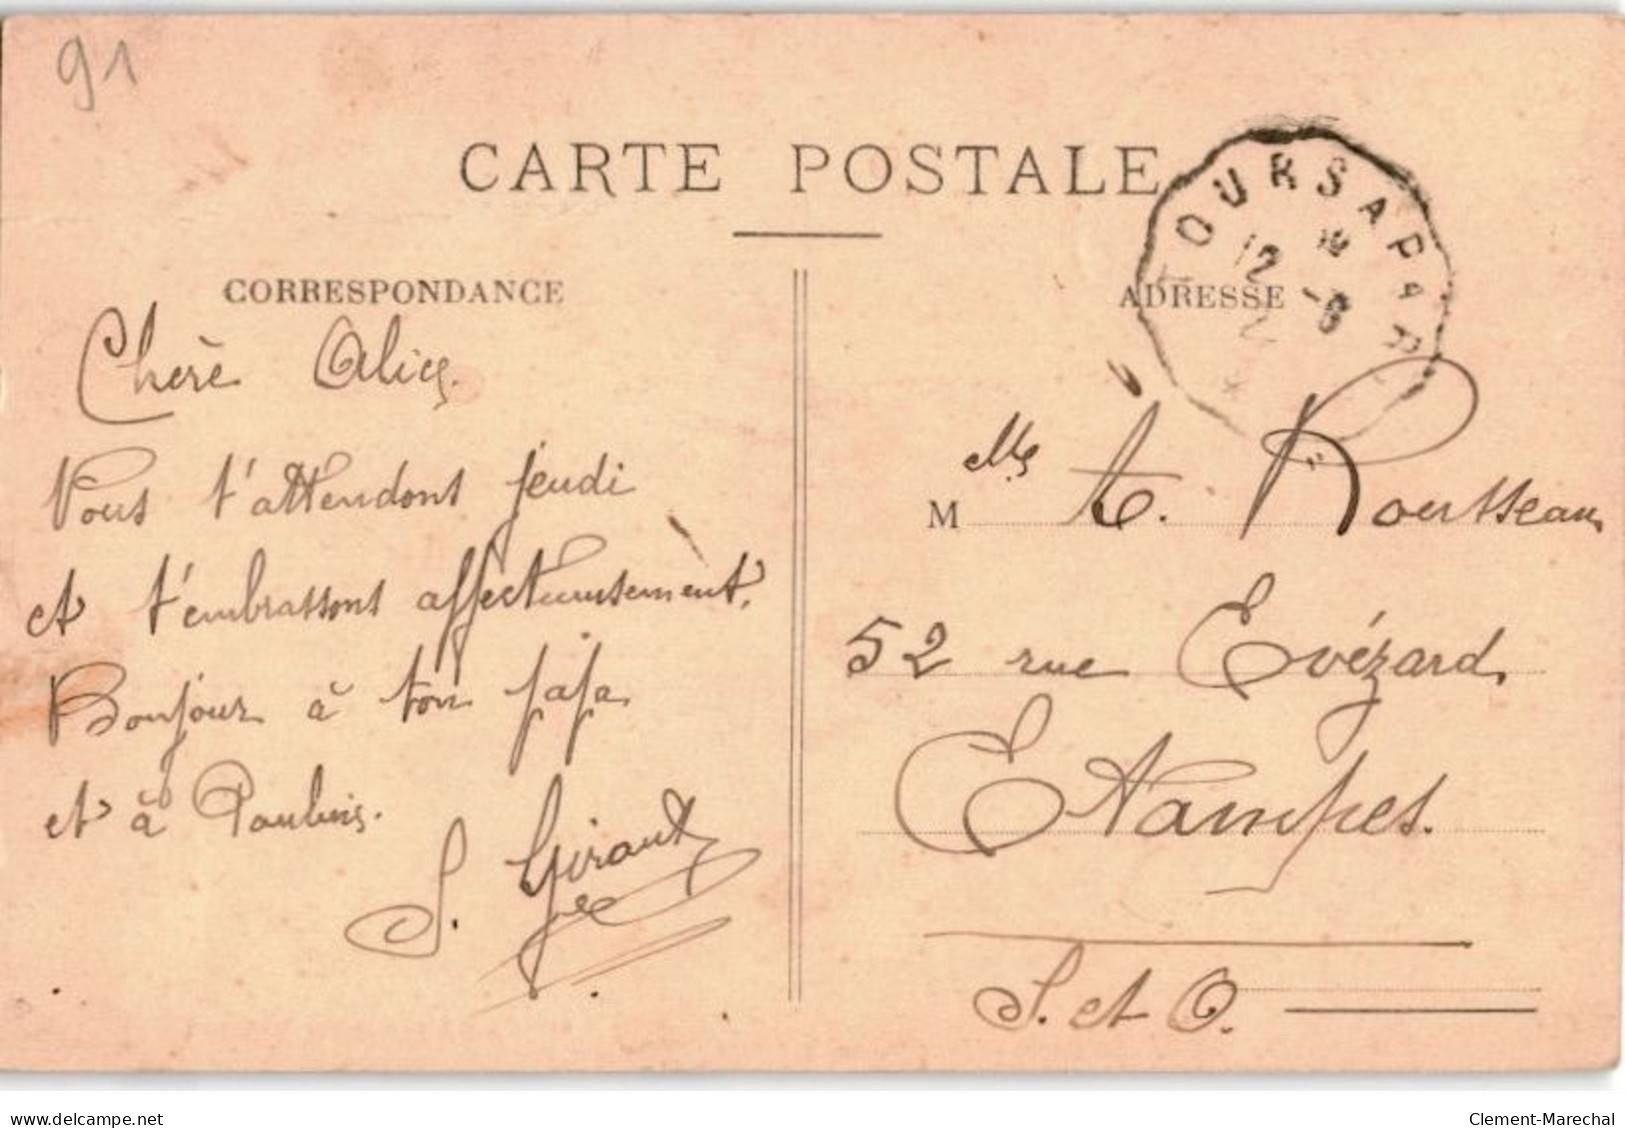 91
CARTE POSTALE
TOURS A PAR
12 -6
CORRESPONDANCE
Chère Alice.
Vous t'attendons jeudi
et t'embrassons affectueusement.
Bonjour à ton papa
et à Paulin.
S. Giraud
ADRESSE
M Mlle A. Rousseau
52 rue Evézard
Etampes.
S. et O.
www.delcampe.net
Clement-Marechal